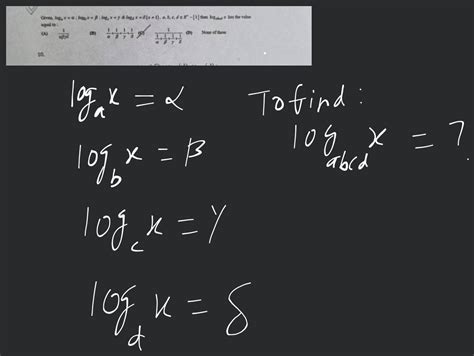 Given, logₐ x = α ; log_b x = β ; log_c x = γ & log_d x = δ (x ≠ 1), a, b, c, d ∈ R⁺ – {1} then log_abcd x has the value
equal to :
(A) 1/αβγδ (B) 1/α + 1/β + 1/γ + 1/δ (C) 1/(1/α + 1/β + 1/γ + 1/δ) (D) None of these
10.
logₐ x = α To find :
log_abcd x = ?
log_b x = β
log_c x = γ
log_d x = δ